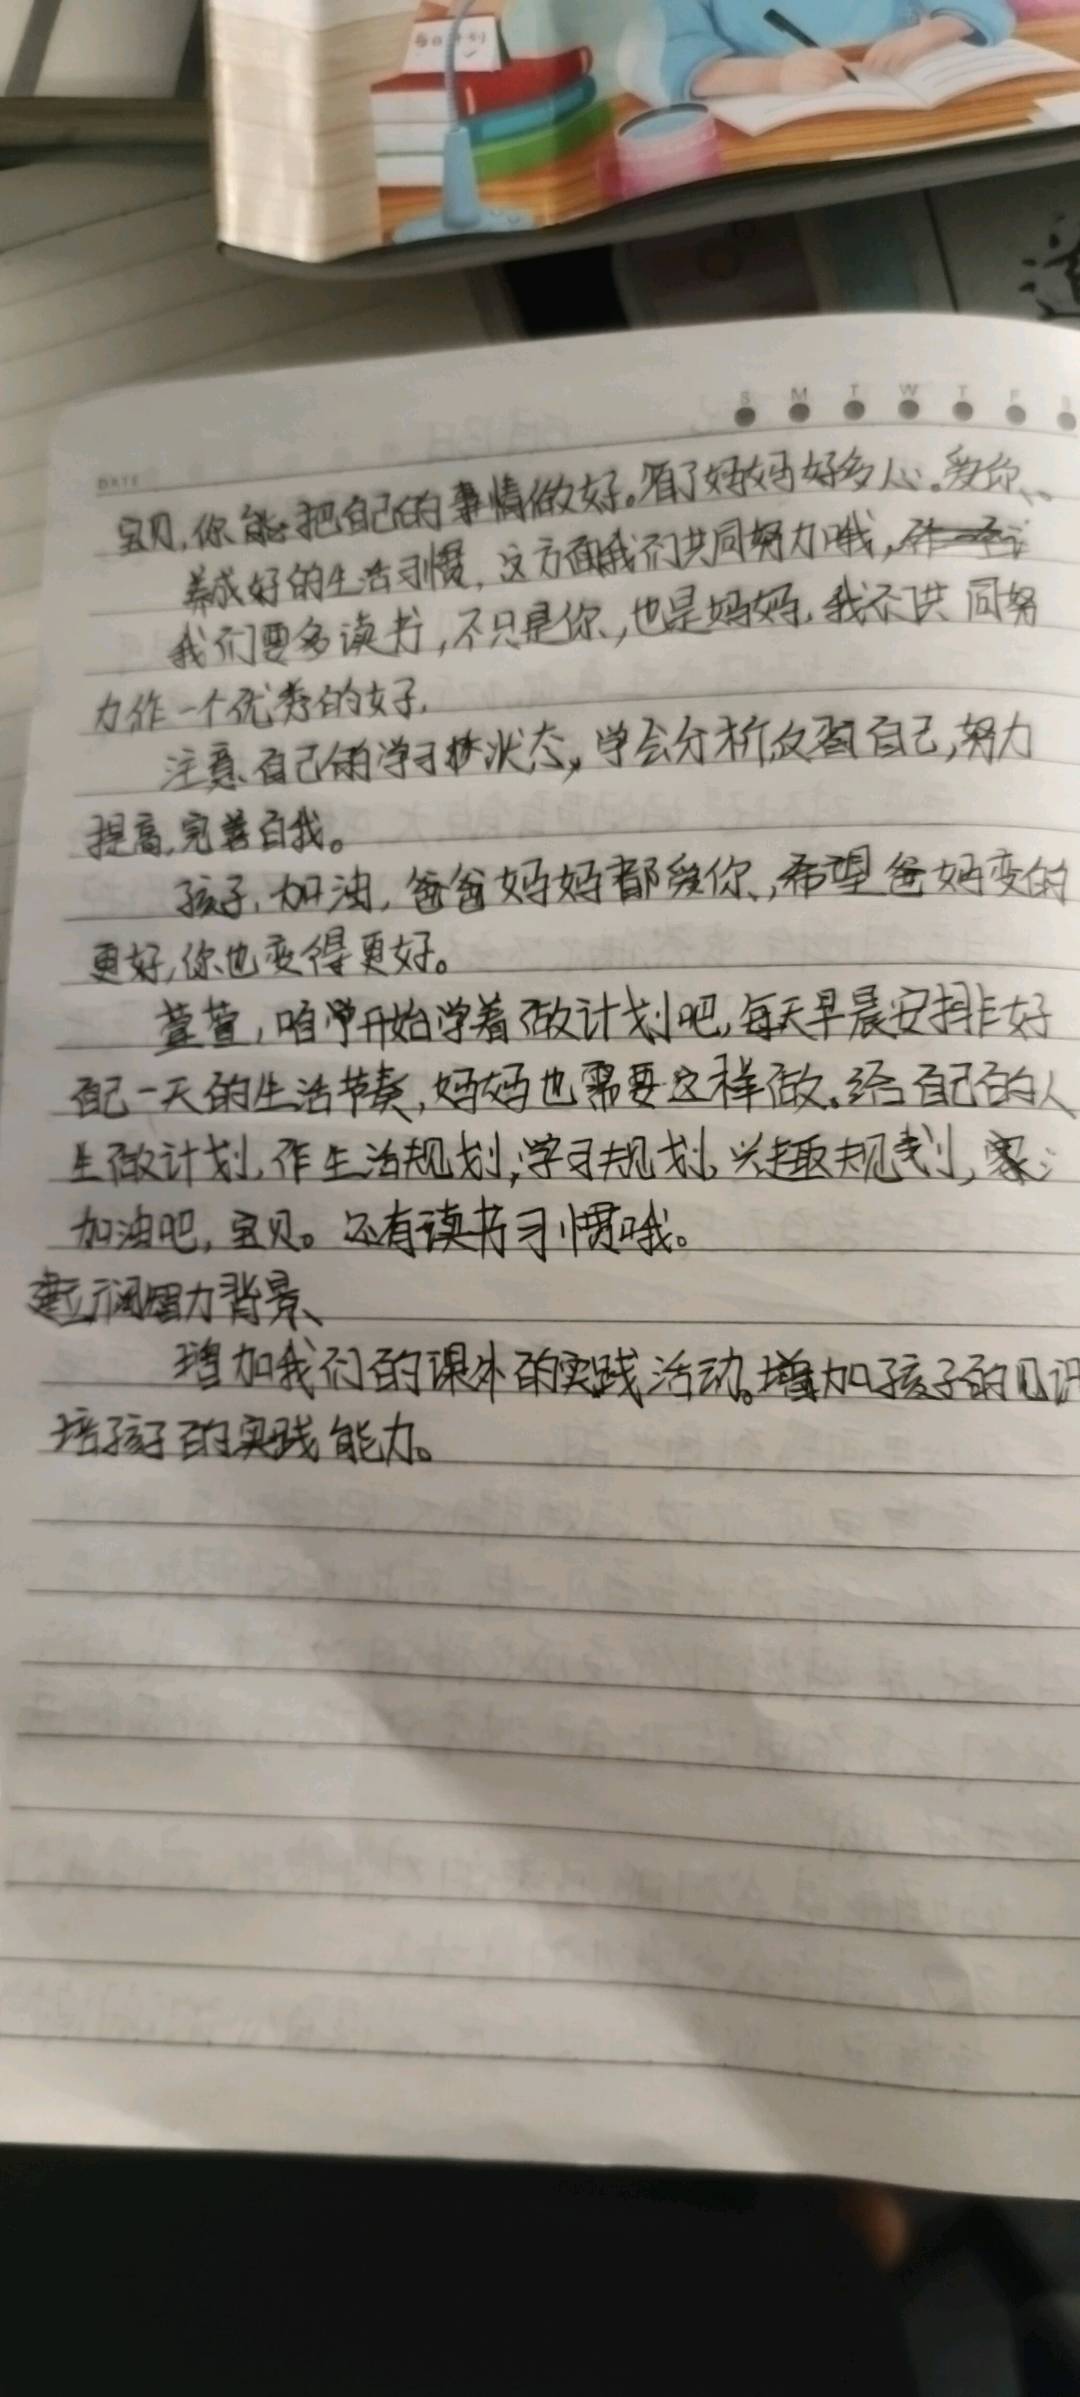 每日计划
S M T W T F S
DATE
宝贝,你能把自己的事情做好。省了妈妈好多心。爱你、
养成好的生活习惯,这方面我们共同努力哦,
我们要多读书,不只是你,也是妈妈,我们共同努
力作一个优秀的女子,
注意自己的学习状态,学会分析反省自己,努力
提高,完善自我。
孩子,加油,爸爸妈妈都爱你,希望爸妈变的
更好,你也变得更好。
萱萱,咱俩开始学着做计划吧,每天早晨安排好
自己一天的生活节奏,妈妈也需要这样做。给自己的人
生做计划,作生活规划,学习规划,兴趣规划,
加油吧,宝贝。还有读书习惯哦。
智力背景、
增加我们的课外的实践活动。增加孩子的见识
培孩子的实践能力。